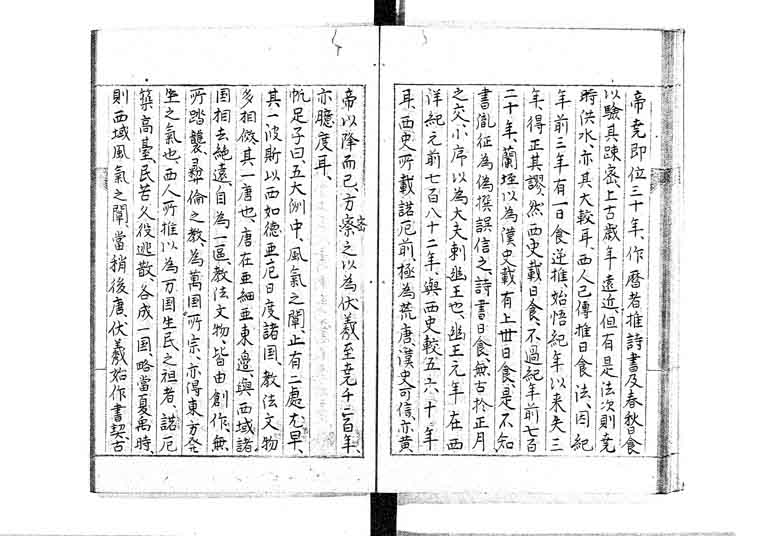 帝堯即位三十年、作曆者推詩書及春秋日食
以驗其疎密、上古歲年遠近、但有是法、次則堯
時洪水、亦其大較耳、西人已傳推日食法、因紀
年前三年有一日食逆推、始悟紀年以来失三
年、得正其謬、然西史載日食、不過紀年前七百
二十年、蘭垤以為漢史載有上丗日食、是不知
書胤征為偽撰誤信之、詩書日食、無古於正月
之交、小序以為大夫刺幽王也、幽王元年、在西
洋紀元前七百八十二年、與西史較五六十年
耳、西史所載諾厄前、極為荒唐、漢史可信、亦黄
帝以降而已、方密之以為伏羲至堯千二百年、
密
亦臆度耳、
帆足子曰、五大洲中、風氣之闢、止有二處尤早、
其一波斯以西如德亜厄日度諸国、教法文物
多相倣、其一唐也、唐在亜細亜東邉、與西域諸
国相去絶遠、自為一區、教法文物、皆由創作、無
所踏襲、彛倫之教、為萬国所宗、亦得東方発
生之氣也、西人所推以為万国生民之祖者、諾厄
築高臺、民苦久役逃散、各成一国、略當夏禹時、
則西域風氣之闢、當稍後唐、伏羲始作書契、古